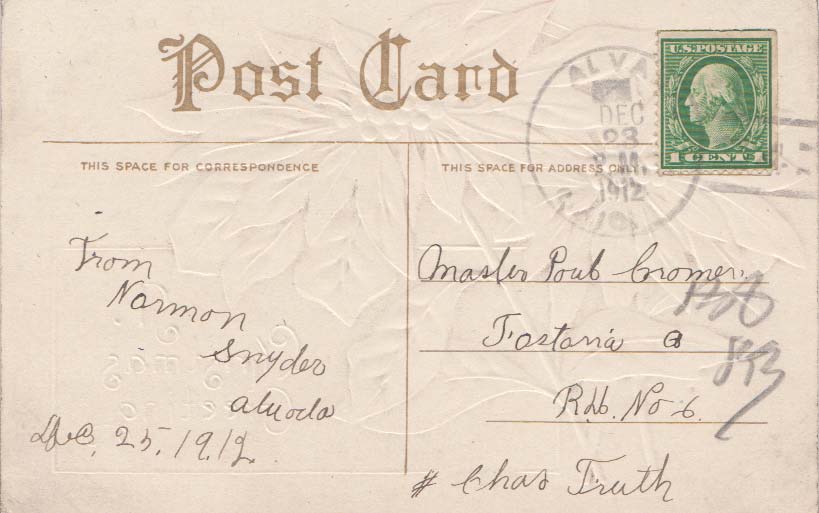 Post Card
U.S. POSTAGE
1 CENT 1
ALVA
DEC
23
P.M.
1912
OHIO
THIS SPACE FOR CORRESPONDENCE
THIS SPACE FOR ADDRESS ONLY
From
Normon
Snyder
alvada
Dec. 25. 1912.
Master Cromer.
Fostaria O
Rd. No 6.
# Chas Truth